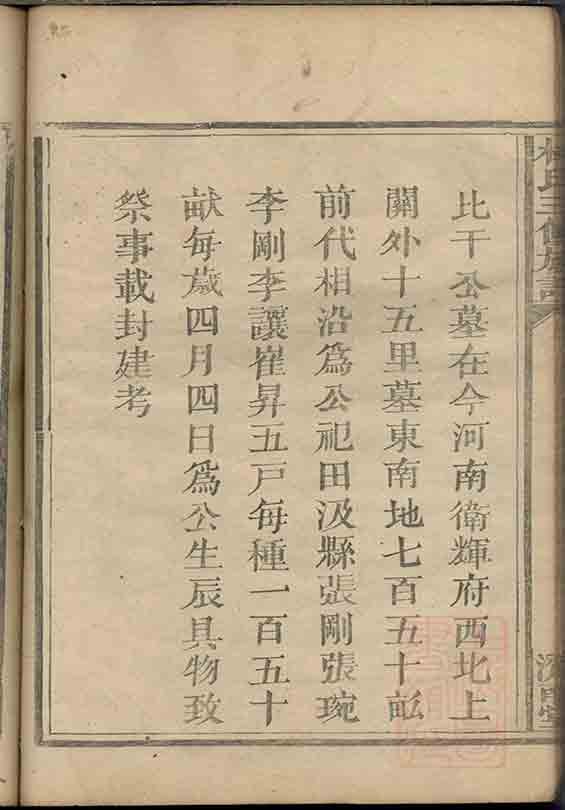 比干公墓在今河南衛輝府西北上
關外十五里墓東南地七百五十畝
前代相沿為公祀田汲縣張剛張琬
李剛李讓崔昇五戶每種一百五十
畝每歲四月四日為公生辰具物致
祭事載封建考
林氏三修族譜